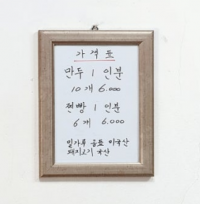 가격표
만두 1 인분
10개 6.000
찐빵 1 인분
6개 6.000
밀가루 미국산
돼지고기 국산